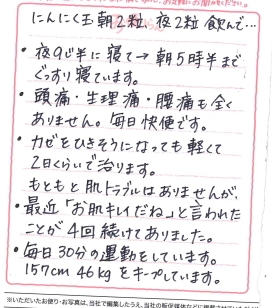 にんにく玉 朝2粒 夜2粒 飲んで…
・夜9じ半に寝て→朝5時半まで
ぐっすり寝ています。
・頭痛・生理痛・腰痛も全く
ありません。毎日快便です。
・カゼをひきそうになっても軽くて
2日くらいで治ります。
もともと肌トラブルはありませんが、
・最近「お肌キレイだね」と言われた
ことが4回続けてありました。
・毎日30分の運動をしています。
157cm 46kgをキープしています。
※いただいたお便り・お写真は、当社で編集したうえ、当社の販促媒体などに掲載させていた